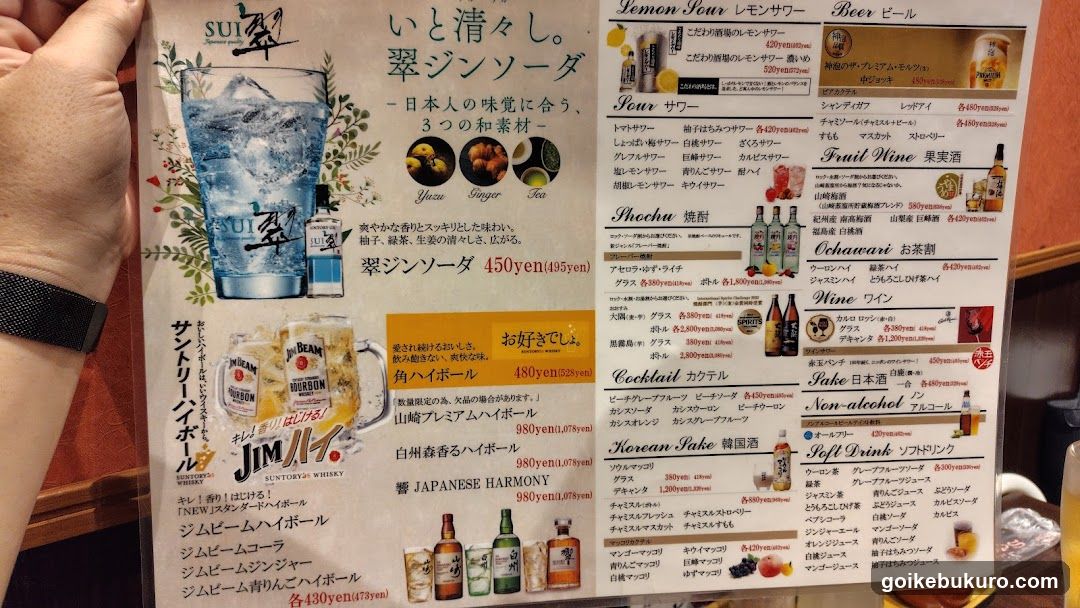 SUI 翠
Japanese quality
いと清々し。
翠ジンソーダ
−日本人の味覚に合う、
3つの和素材−
Yuzu
Ginger
Tea
SUI 翠
爽やかな香りとスッキリとした味わい。
柚子、緑茶、生姜の清々しさ、広がる。
翠ジンソーダ 450yen(495yen)
おいしいハイボールは、いいウイスキーから。
サントリーハイボール
SUNTORY WHISKY
JIM BEAM
BOURBON
キレ!香り!はじける!
JIMハイ。
SUNTORY WHISKY
愛され続けるおいしさ。
飲み飽きない、爽快な味。
お好きでしょ。
角ハイボール 480yen(528yen)
「数量限定の為、欠品の場合があります。」
山崎プレミアムハイボール
980yen(1,078yen)
白州森香るハイボール
980yen(1,078yen)
響 JAPANESE HARMONY
980yen(1,078yen)
キレ!香り!はじける!
「NEW」スタンダードハイボール
ジムビームハイボール
ジムビームコーラ
ジムビームジンジャー
ジムビーム青りんごハイボール
各430yen(473yen)
Lemon Sour レモンサワー
こだわり酒場のレモンサワー
420yen(462yen)
こだわり酒場のレモンサワー 濃いめ
520yen(572yen)
Sour サワー
トマトサワー 柚子はちみつサワー 各420yen(462yen)
しょっぱい梅サワー 白桃サワー ざくろサワー
グレフルサワー 巨峰サワー カルピスサワー
塩レモンサワー 青りんごサワー 酎ハイ
胡椒レモンサワー キウイサワー
Shochu 焼酎
フレーバー焼酎
アセロラ・ゆず・ライチ
グラス 各380yen(418yen) ボトル 各1,800yen(1,980yen)
大隅(麦・芋) グラス 各380yen(418yen)
ボトル 各2,800yen(3,080yen)
黒霧島(芋) グラス 380yen(418yen)
ボトル 2,800yen(3,080yen)
Cocktail カクテル
ピーチグレープフルーツ ピーチソーダ 各450yen(495yen)
カシスソーダ カシスウーロン ピーチウーロン
カシスオレンジ カシスグレープフルーツ
Korean Sake 韓国酒
ソウルマッコリ
グラス 380yen(418yen)
デキャンタ 1,200yen(1,320yen)
チャミスル(ボトル) 各880yen(968yen)
チャミスルフレッシュ チャミスルストロベリー
チャミスルマスカット チャミスルすもも
マッコリカクテル
マンゴーマッコリ キウイマッコリ 各420yen(462yen)
青りんごマッコリ 巨峰マッコリ
白桃マッコリ ゆずマッコリ
Beer ビール
神泡のザ・プレミアム・モルツ(生)
中ジョッキ 480yen(528yen)
ビアカクテル
シャンディガフ レッドアイ 各480yen(528yen)
チャミソール(チャミスル+ビール) 各480yen(528yen)
すもも マスカット ストロベリー
Fruit Wine 果実酒
山崎梅酒
(山崎蒸溜所貯蔵梅酒ブレンド) 580yen(638yen)
紀州産 南高梅酒 山梨産 巨峰酒 各420yen(462yen)
福島産 白桃酒
Ochawari お茶割
ウーロンハイ 緑茶ハイ 各420yen(462yen)
ジャスミンハイ とうもろこしひげ茶ハイ
Wine ワイン
カルロ ロッシ(赤・白)
グラス 各380yen(418yen)
デキャンタ 各1,200yen(1,320yen)
ワインサワー
赤玉パンチ 450yen(495yen)
赤玉パンチ
Sake 日本酒 白鹿(燗・冷)
一合 各480yen(528yen)
Non-alcohol ノンアルコール
オールフリー 420yen(462yen)
Soft Drink ソフトドリンク
ウーロン茶 グレープフルーツソーダ 各300yen(330yen)
緑茶 グレープフルーツジュース
ジャスミン茶 青りんごジュース ぶどうソーダ
とうもろこしひげ茶 ぶどうジュース カルピスソーダ
ペプシコーラ 白桃ソーダ カルピス
ジンジャーエール マンゴーソーダ
オレンジジュース 青りんごソーダ
白桃ジュース 柚子はちみつソーダ
マンゴージュース
goikebukuro.com